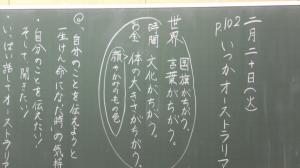 二月二十日(火)
p.102 いつかオーストラリア
世界 国旗がちがう。
言葉がちがう。
時間 文化がちがう。
お金 体の大きさがちがう。
自分のことを伝えようと
一生けん命になだ時の気持
・自分のことを伝えたい!
そして、聞きたい!
・いっぱい話してオーストラリア